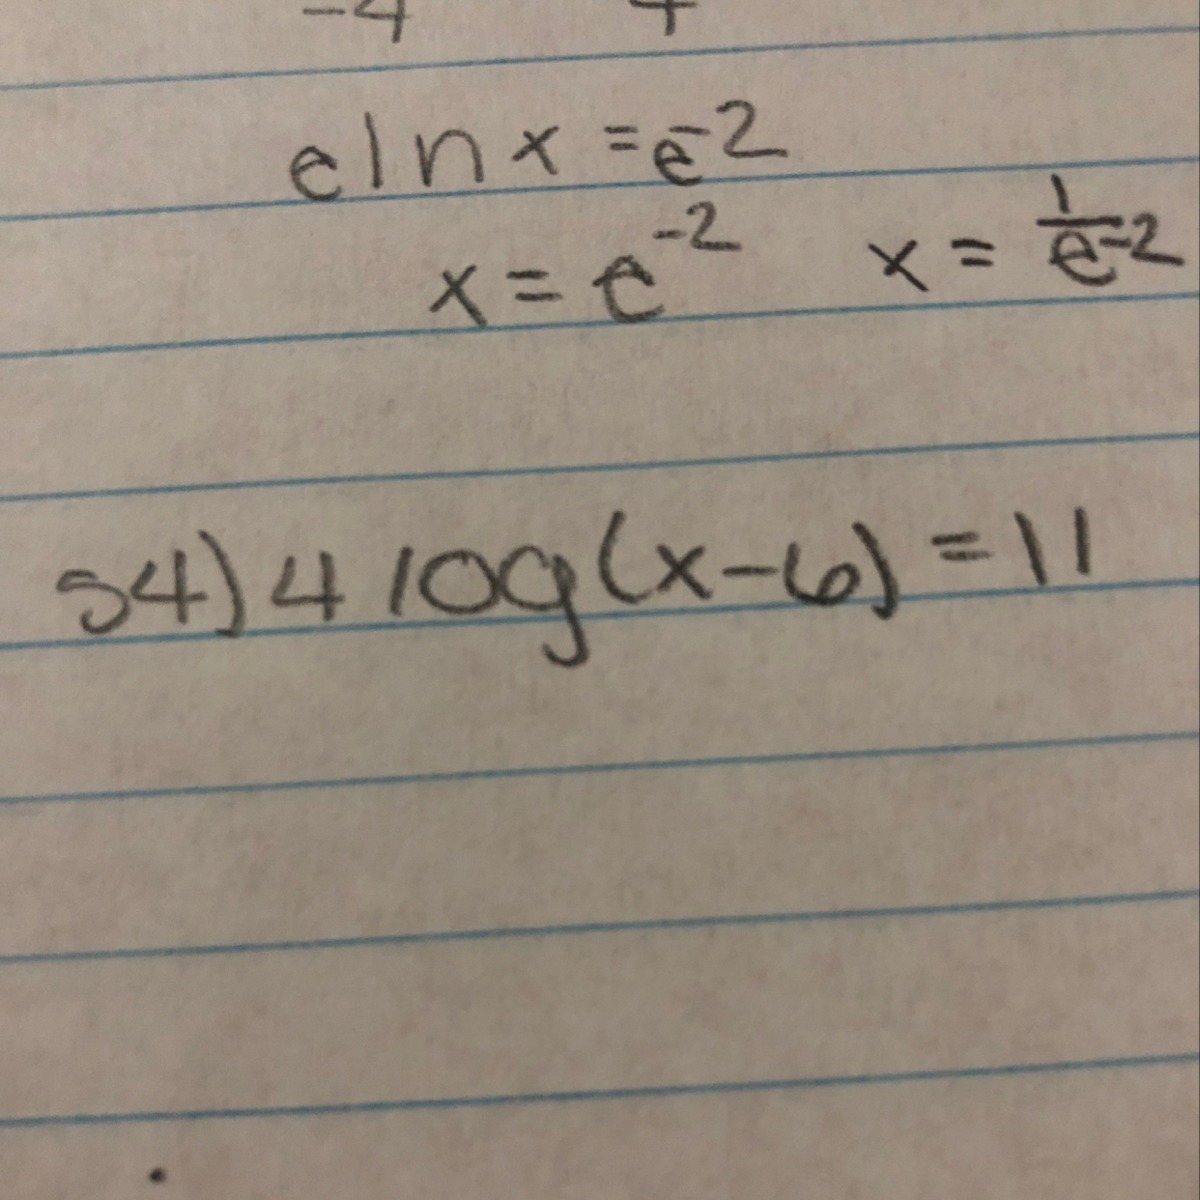 -4 4
e ln x = e^-2
x = e^-2 x = 1/e^-2
54) 4 log(x-6) = 11